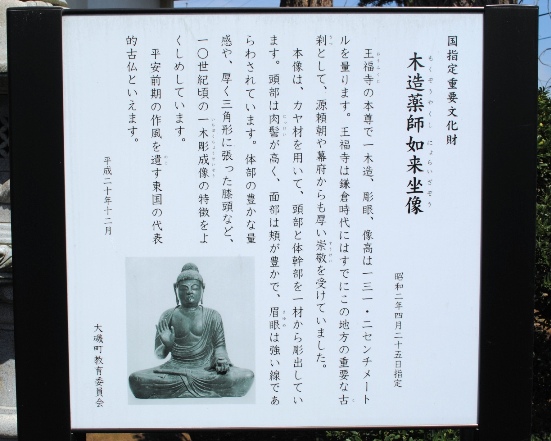 国指定重要文化財
木造薬師如来坐像
もくぞうやくしにょらいざぞう
昭和二年四月二十五日指定
王福寺の本尊で一木造、彫眼、像高は一三一・二センチメート
ルを量ります。王福寺は鎌倉時代にはすでにこの地方の重要な古
刹として、源頼朝や幕府からも厚い崇敬を受けていました。
本像は、カヤ材を用いて、頭部と体幹部を一材から彫出してい
ます。頭部は肉髻が高く、面部は頬が豊かで、眉眼は強い線であ
らわされています。体部の豊かな量
感や、厚く三角形に張った膝頭など、
一〇世紀頃の一木彫成像の特徴をよ
くしめしています。
平安前期の作風を遺す東国の代表
的古仏といえます。
平成二十年十二月
大磯町教育委員会